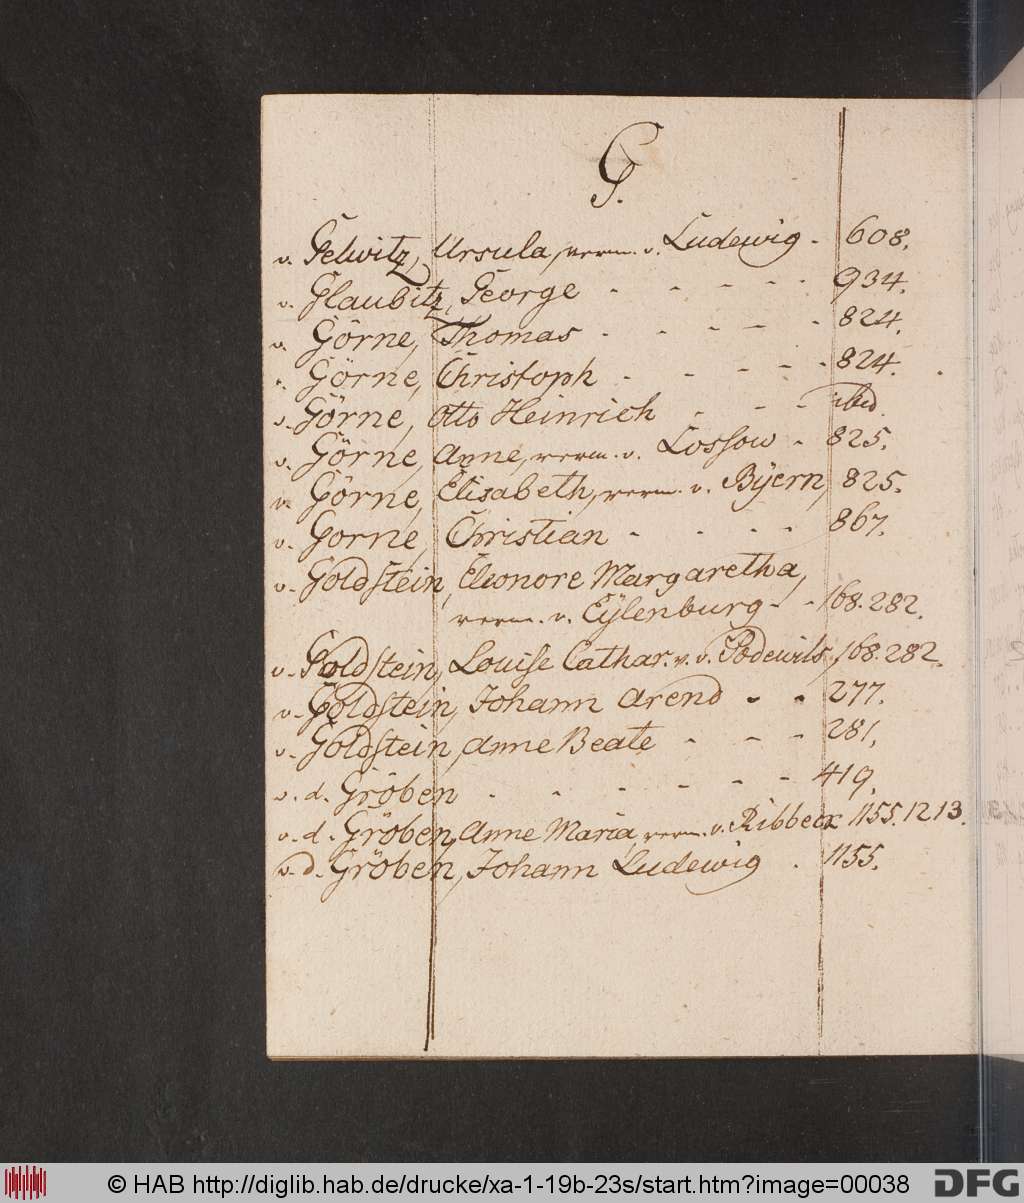 G.
v. Gelwitz, Ursula, verm. v. Ludewig - 608.
v. Glaubitz, George - - - - - 934.
v. Görne, Thomas - - - - - 824.
v. Görne, Christoph - - - - - 824.
v. Görne, Otto Heinrich - - - ibid.
v. Görne, Anne, verm. v. Lossow - 825.
v. Görne, Elisabeth, verm. v. Bÿern, 825.
v. Gorne, Christian - - - - 867.
v. Goldstein, Eleonore Margaretha,
verm. v. Eÿlenburg - - 168. 282.
v. Goldstein, Louise Cathar. v. v. Podewils, 168. 282.
v. Goldstein, Johann Arend - - 277.
v. Goldstein, Anne Beate - - - 281.
v. d. Gröben - - - - - - 419.
v. d. Gröben, Anne Maria, verm. v. Ribbeck 1155. 1213.
v. d. Gröben, Johann Ludewig - 1155.
© HAB http://diglib.hab.de/drucke/xa-1-19b-23s/start.htm?image=00038
DFG